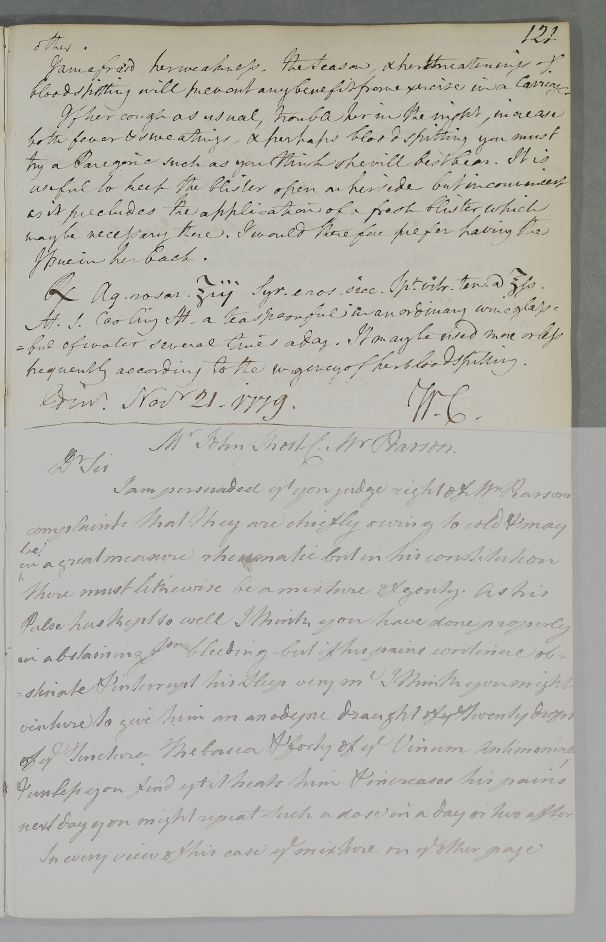 121
other.
I am afraid her weakness, the season, & her threatenings of
bloodspitting will prevent any benefit from exercise in a Carriage.
If her cough as usual, trouble her in the night, increase
both fever & sweatings, & perhaps bloodspitting you must
try a Paregoric such as you think she will best bear. It is
useful to keep the blister open on her side but inconvenient
as it precludes the application of a fresh blister, which
may be necessary there. I would therefore prefer having the
Issue in her back.
℞ Aq. rosar. ℥iij Syr. e ros. sicc. Spt. vitr. ten. a ℥ss.
M. S. Cooling M. a teaspoonful in an ordinary wineglass=
=ful of water several times a day. It may be used more or less
frequently according to the urgency of her bloodspitting.
Edinr. Novr 21. 1779. W.C.
Mr John Short f. Mr Pearson.
Dr Sir
I am persuaded yt you judge right of Mr Pearsons
complaints that they are chiefly owing to cold & may
be
in a great measure rheumatic but in his constitution
there must likewise be a mixture of gouty. As his
Pulse has kept so well I think you have done properly
in abstaining from bleeding but if his pains continue ob-
=stinate & interrupt his sleep very mt I think you might
venture to give him an anodyne draught of ye twenty drops
of ye Tincture Thebaica & forty of ye Vinum Antimoniale
& unless you find yt it heats him & increases his pains
next day you might repeat such a dose in a day or two after
In every view of his case ye mixture on ye other page